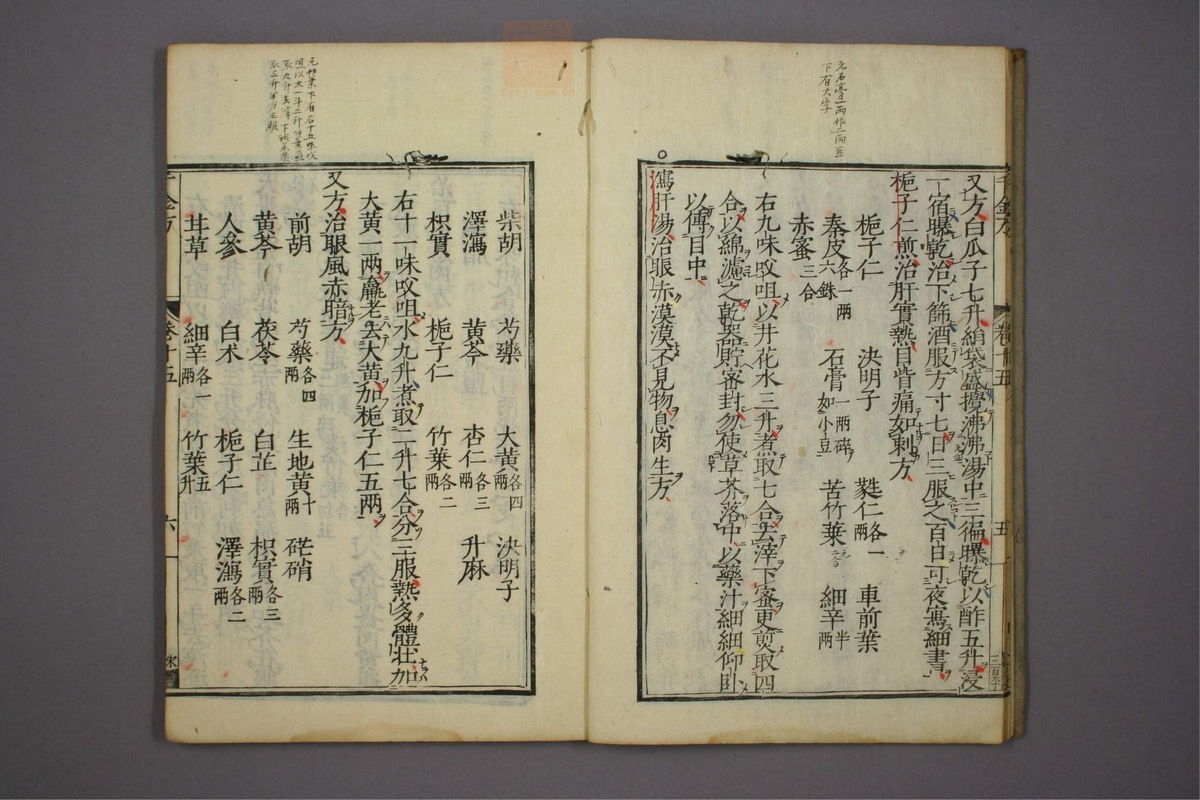 元石膏一兩作二兩豆
下有大字
又方白瓜子七升絹袋盛攪沸沸湯中三徧曝乾以酢五升浸
一宿曝乾治下篩酒服方寸七日三服之百日可夜寫細書
梔子仁煎治肝實熱目眥痛如刺方
梔子仁 決明子 蕤仁各一兩 車前葉
秦皮各一兩六銖 石膏一兩碎如小豆 苦竹葉二合 細辛半兩
赤蜜三合
右九味㕮咀以井花水三升煮取七合去滓下蜜更煎取四
合以綿濾之乾器貯密封勿使草芥落中以藥汁細細仰臥
以傅目中
瀉肝湯治眼赤漠漠不見物息肉生方
千金方 卷十五 五
柴胡 芍藥 大黃各四兩 決明子
澤瀉 黃芩 杏仁各三兩 升麻
枳實 梔子仁 竹葉各二兩
右十一味㕮咀水九升煮取二升七合分三服熱多體壯加
大黃一兩羸老去大黃加梔子仁五兩
又方治眼風赤暗方
前胡 芍藥各四兩 生地黃十兩 芒硝
黃芩 茯苓 白芷 枳實各三兩
人參 白朮 梔子仁 澤瀉各二兩
甘草 細辛各一兩 竹葉五升
千金方 卷十五 六